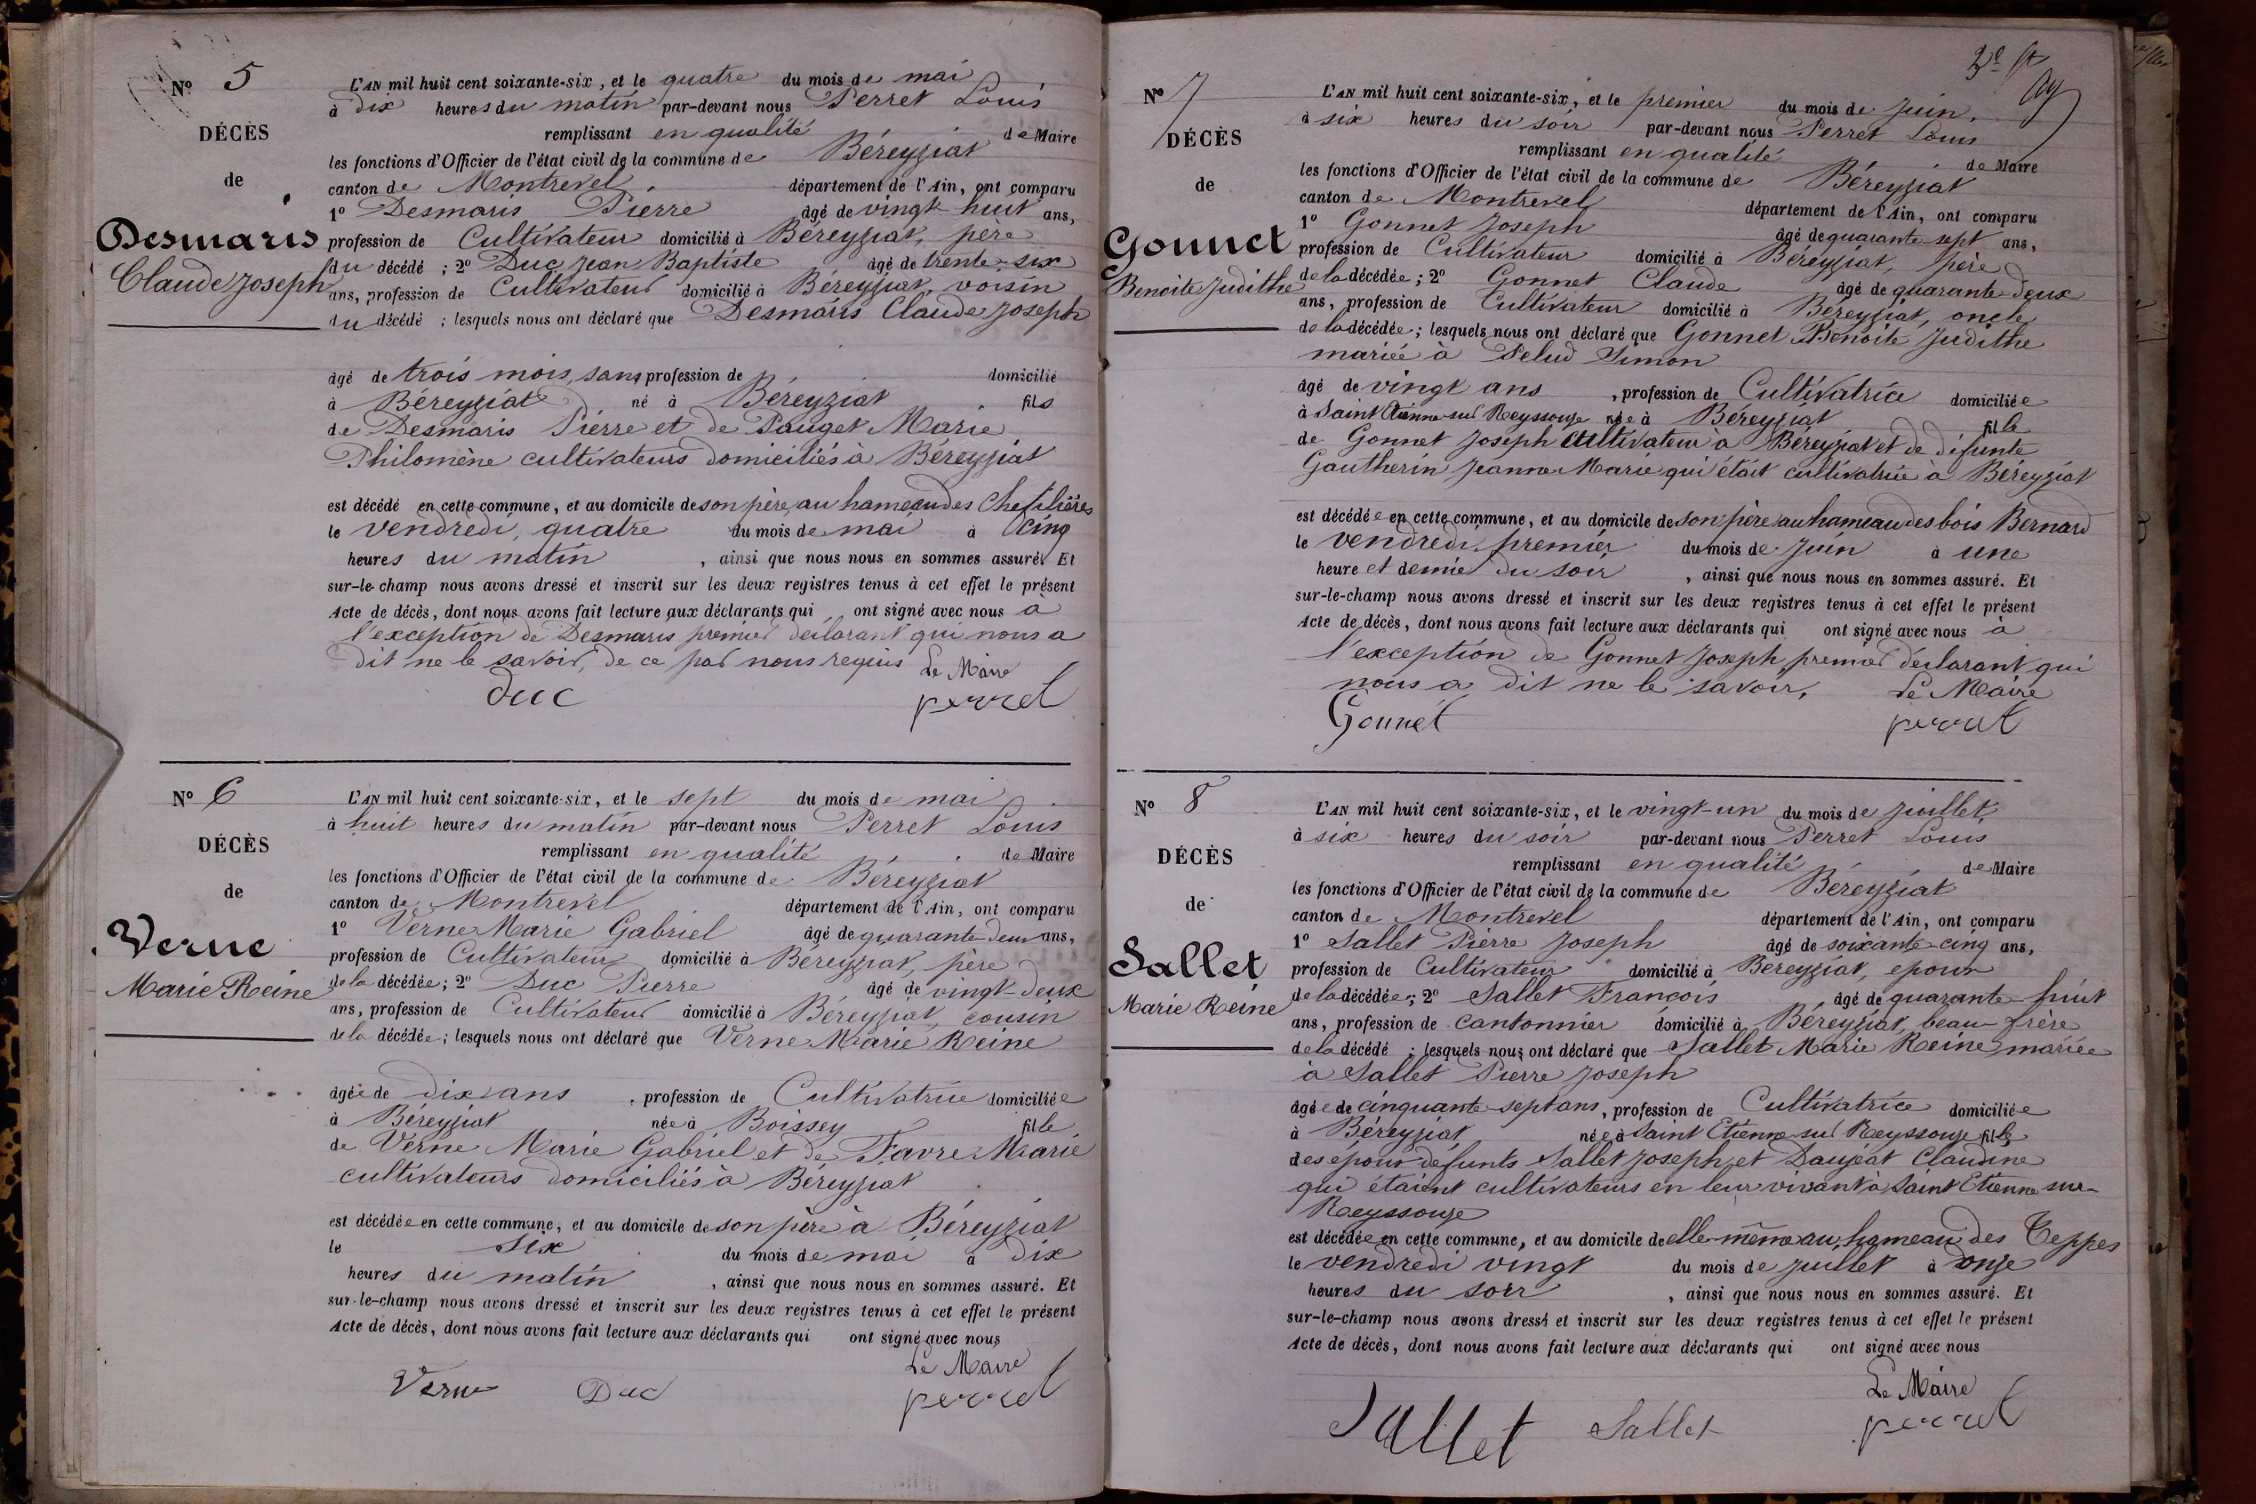 Nº 5
DÉCÈS
de
Desmaris
Claude Joseph
L'AN mil huit cent soixante-six, et le quatre du mois de mai
à dix heures du matin par-devant nous Perret Louis
remplissant en qualité de Maire
les fonctions d'Officier de l'état civil de la commune de Béreyziat
canton de Montrevel département de l'Ain, ont comparu
1º Desmaris Pierre âgé de vingt huit ans,
profession de Cultivateur domicilié à Béreyziat, père
du décédé ; 2º Duc Jean Baptiste âgé de trente-six
ans, profession de Cultivateur domicilié à Béreyziat, voisin
du décédé ; lesquels nous ont déclaré que Desmaris Claude Joseph
âgé de trois mois, sans profession de domicilié
à Béreyziat né à Béreyziat fils
de Desmaris Pierre et de Pauget Marie
Philomène cultivateurs domiciliés à Béreyziat
est décédé en cette commune, et au domicile de son père, au hameau des
le vendredi, quatre du mois de mai à cinq
heures du matin , ainsi que nous nous en sommes assuré. Et
sur-le-champ nous avons dressé et inscrit sur les deux registres tenus à cet effet le présent
Acte de décès, dont nous avons fait lecture aux déclarants qui ont signé avec nous à
l'exception de Desmaris premier déclarant qui nous a
dit ne le savoir, de ce par nous requis Le Maire
Duc perret
Nº 6
DÉCÈS
de
Verne
Marie Reine
L'AN mil huit cent soixante-six, et le sept du mois de mai
à huit heures du matin par-devant nous Perret Louis
remplissant en qualité de Maire
les fonctions d'Officier de l'état civil de la commune de Béreyziat
canton de Montrevel département de l'Ain, ont comparu
1º Verne Marie Gabriel âgé de quarante deux ans,
profession de Cultivateur domicilié à Béreyziat, père
de la décédée ; 2º Duc Pierre âgé de vingt-deux
ans, profession de Cultivateur domicilié à Béreyziat, cousin
de la décédée ; lesquels nous ont déclaré que Verne Marie Reine
âgée de dix ans , profession de Cultivatrice domiciliée
à Béreyziat née à Boissey fille
de Verne Marie Gabriel et de Favre Marie
cultivateurs domiciliés à Béreyziat
est décédée en cette commune, et au domicile de son père à Béreyziat
le six du mois de mai à dix
heures du matin , ainsi que nous nous en sommes assuré. Et
sur-le-champ nous avons dressé et inscrit sur les deux registres tenus à cet effet le présent
Acte de décès, dont nous avons fait lecture aux déclarants qui ont signé avec nous
Le Maire
Verne Duc perret
Nº 7
DÉCÈS
de
Gonnet
Benoite Judithe
L'AN mil huit cent soixante-six, et le premier du mois de juin,
à six heures du soir par-devant nous Perret Louis
remplissant en qualité de Maire
les fonctions d'Officier de l'état civil de la commune de Béreyziat
canton de Montrevel département de l'Ain, ont comparu
1º Gonnet Joseph âgé de quarante-sept ans,
profession de Cultivateur domicilié à Béreyziat, père
de la décédée ; 2º Gonnet Claude âgé de quarante-deux
ans, profession de Cultivateur domicilié à Béreyziat, oncle
de la décédée ; lesquels nous ont déclaré que Gonnet Benoite Judithe
mariée à Pelud Simon
âgé de vingt ans , profession de Cultivatrice domiciliée
à Saint Etienne sur Reyssouze née à Béreyziat fille
de Gonnet Joseph cultivateur à Béreyziat et de défunte
Gautherin Jeanne Marie qui était cultivatrice à Béreyziat
est décédée en cette commune, et au domicile de son père au hameau des bois Bernard
le vendredi, premier du mois de juin à une
heure et demie du soir , ainsi que nous nous en sommes assuré. Et
sur-le-champ nous avons dressé et inscrit sur les deux registres tenus à cet effet le présent
Acte de décès, dont nous avons fait lecture aux déclarants qui ont signé avec nous à
l'exception de Gonnet Joseph premier déclarant qui
nous a dit ne le savoir, Le Maire
Gonnet perret
Nº 8
DÉCÈS
de
Sallet
Marie Reine
L'AN mil huit cent soixante-six, et le vingt-un du mois de juillet
à six heures du soir par-devant nous Perret Louis
remplissant en qualité de Maire
les fonctions d'Officier de l'état civil de la commune de Béreyziat
canton de Montrevel département de l'Ain, ont comparu
1º Sallet Pierre Joseph âgé de soixante-cinq ans,
profession de Cultivateur domicilié à Béreyziat, epoux
de la décédée ; 2º Sallet François âgé de quarante-huit
ans, profession de cantonnier domicilié à Béreyziat, beau-frère
de la décédé ; lesquels nous ont déclaré que Sallet Marie Reine, mariée
à Sallet Pierre Joseph
âgée de cinquante-sept ans, profession de Cultivatrice domiciliée
à Béreyziat née à Saint Etienne sur Reyssouze fille
des époux défunts Sallet Joseph et Daujeat Claudine
qui étaient cultivateurs en leur vivant à Saint Etienne sur-
Reyssouze
est décédée en cette commune, et au domicile de elle-même au hameau des Teppes
le vendredi vingt du mois de juillet à onze
heures du soir , ainsi que nous nous en sommes assuré. Et
sur-le-champ nous avons dressé et inscrit sur les deux registres tenus à cet effet le présent
Acte de décès, dont nous avons fait lecture aux déclarants qui ont signé avec nous
Le Maire
Sallet Sallet perret